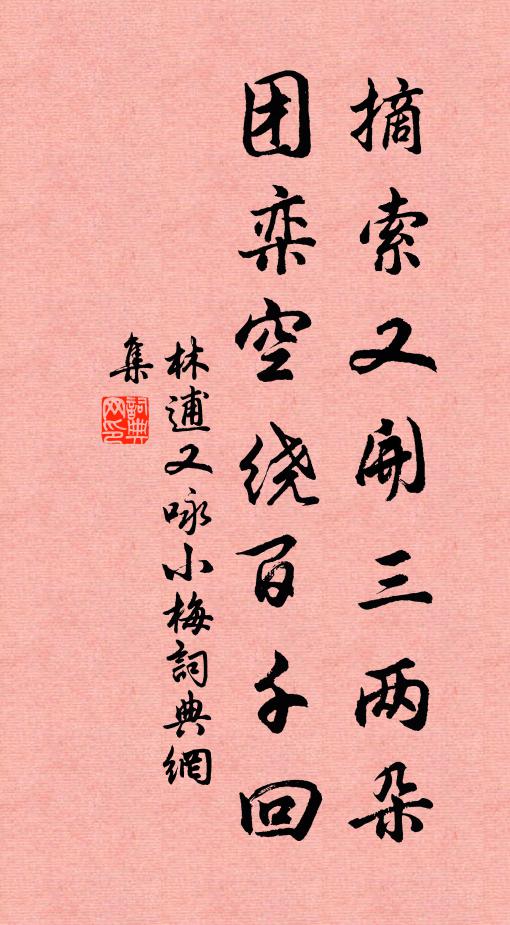 摘索又开三两朵
团栾空绕百千回
林逋又咏小梅詞典網
集
詞典网印